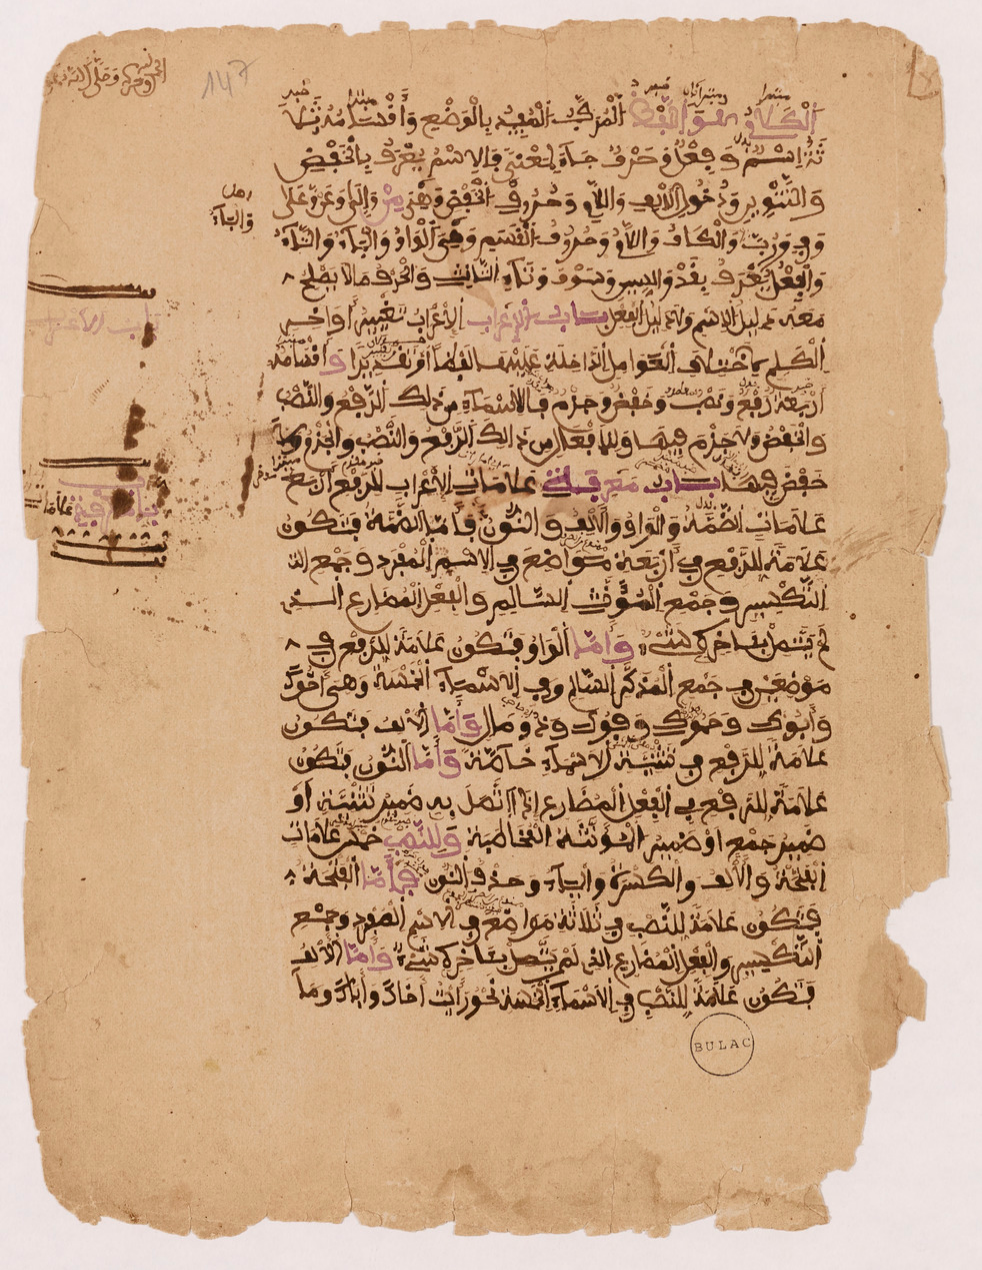 147
الْكَلَامُ هُوَ اللَّفْظُ الْمُرَكَّبُ الْمُفِيدُ بِالْوَضْعِ وَأَقْسَامُهُ ثَلَا
ثَةٌ اِسْمٌ وَفِعْلٌ وَحَرْفٌ جَاءَ لِمَعْنَى فَالِاسْمُ يُعْرَفُ بِالْخَفْضِ
وَالتَّنْوِينِ وَدُخُولِ الْأَلِفِ وَاللَّامِ وَحُرُوفِ الْخَفْضِ وَهْيَ مِنْ وَإِلَى وَعَنْ وَعَلَى
وَفِي وَرُبَّ وَالْكَافُ وَاللَّامُ وَحُرُوفُ الْقَسَمِ وَهْيَ الْوَاوُ وَالْبَاءُ وَالتَّاءُ
وَالْفِعْلُ يُعْرَفُ بِقَدْ وَالسِّينِ وَسَوْفَ وَتَاءِ التَّانِيثِ وَالْحَرْفُ مَا لَا يَصْلُحُ
مَعَهُ دَلِيلُ الِاسْمِ وَلَا دَلِيلُ الْفِعْلِ بَابُ الْإِعْرَابِ الْإِعْرَابُ تَغْيِيرُ أَوَاخِرِ
الْكَلِمِ بِاخْتِلَافِ الْعَوَامِلِ الدَّاخِلَةِ عَلَيْهَا لَفْظًا أَوْ تَقْدِيرًا وَأَقْسَامُهُ
أَرْبَعَةٌ رَفْعٌ وَنَصْبٌ وَخَفْضٌ وَجَزْمٌ فَلِلْأَسْمَاءِ مِنْ ذَلِكَ الرَّفْعُ وَالنَّصْبُ
وَالْخَفْضُ وَلَا جَزْمَ فِيهَا وَلِلْأَفْعَالِ مِنْ ذَالِكَ الرَّفْعُ وَالنَّصْبُ وَالْجَزْمُ وَلَا
خَفْضَ فِيهَا بَابُ مَعْرِفَةِ عَلَامَاتِ الْإِعْرَابِ لِلرَّفْعِ أَرْبَعُ
عَلَامَاتٍ الضَّمَّةُ وَالْوَاوُ وَالْأَلِفُ وَالنُّونُ فَأَمَّا الضَّمَّةُ فَتَكُونُ
عَلَامَةً لِلرَّفْعِ فِي أَرْبَعَةِ مَوَاضِعَ فِي الِاسْمِ الْمُفْرَدِ وَجَمْعِ
التَّكْسِيرِ وَجَمْعِ الْمُؤَنَّثِ السَّالِمِ وَالْفِعْلِ الْمُضَارِعِ الَّذِي
لَمْ يَتَّصِلْ بِآخِرِهِ شَيْءٌ وَأَمَّا الْوَاوُ فَتَكُونُ عَلَامَةً لِلرَّفْعِ فِي
مَوْضِعَيْنِ فِي جَمْعِ الْمُذَكَّرِ السَّالِمِ وَفِي الْأَسْمَاءِ الْخَمْسَةِ وَهْيَ أَخُوكَ
وَأَبُوكَ وَحَمُوكَ وَفُوكَ وَذُو مَالٍ وَأَمَّا الْأَلِفُ فَتَكُونُ
عَلَامَةً لِلرَّفْعِ فِي تَثْنِيَةِ الْأَسْمَاءِ خَاصَّةً وَأَمَّا النُّونُ فَتَكُونُ
عَلَامَةً لِلرَّفْعِ فِي الْفِعْلِ الْمُضَارِعِ إِذَا اتَّصَلَ بِهِ ضَمِيرُ تَثْنِيَةٍ أَوْ
ضَمِيرُ جَمْعٍ أَوْ ضَمِيرُ الْمُؤَنَّثَةِ الْمُخَاطَبَةِ وَلِلنَّصْبِ خَمْسُ عَلَامَاتٍ
الْفَتْحَةُ وَالْأَلِفُ وَالْكَسْرَةُ وَالْيَاءُ وَحَذْفُ النُّونِ فَأَمَّا الْفَتْحَةُ
فَتَكُونُ عَلَامَةً لِلنَّصْبِ فِي ثَلَاثَةِ مَوَاضِعَ فِي الِاسْمِ الْمُفْرَدِ وَجَمْعِ
التَّكْسِيرِ وَالْفِعْلِ الْمُضَارِعِ الَّذِي لَمْ يَتَّصِلْ بِآخِرِهِ شَيْءٌ وَأَمَّا الْأَلِفُ
فَتَكُونُ عَلَامَةً لِلنَّصْبِ فِي الْأَسْمَاءِ الْخَمْسَةِ نَحْوُ رَأَيْتُ أَخَاكَ وَأَبَاكَ وَمَا
BULAC